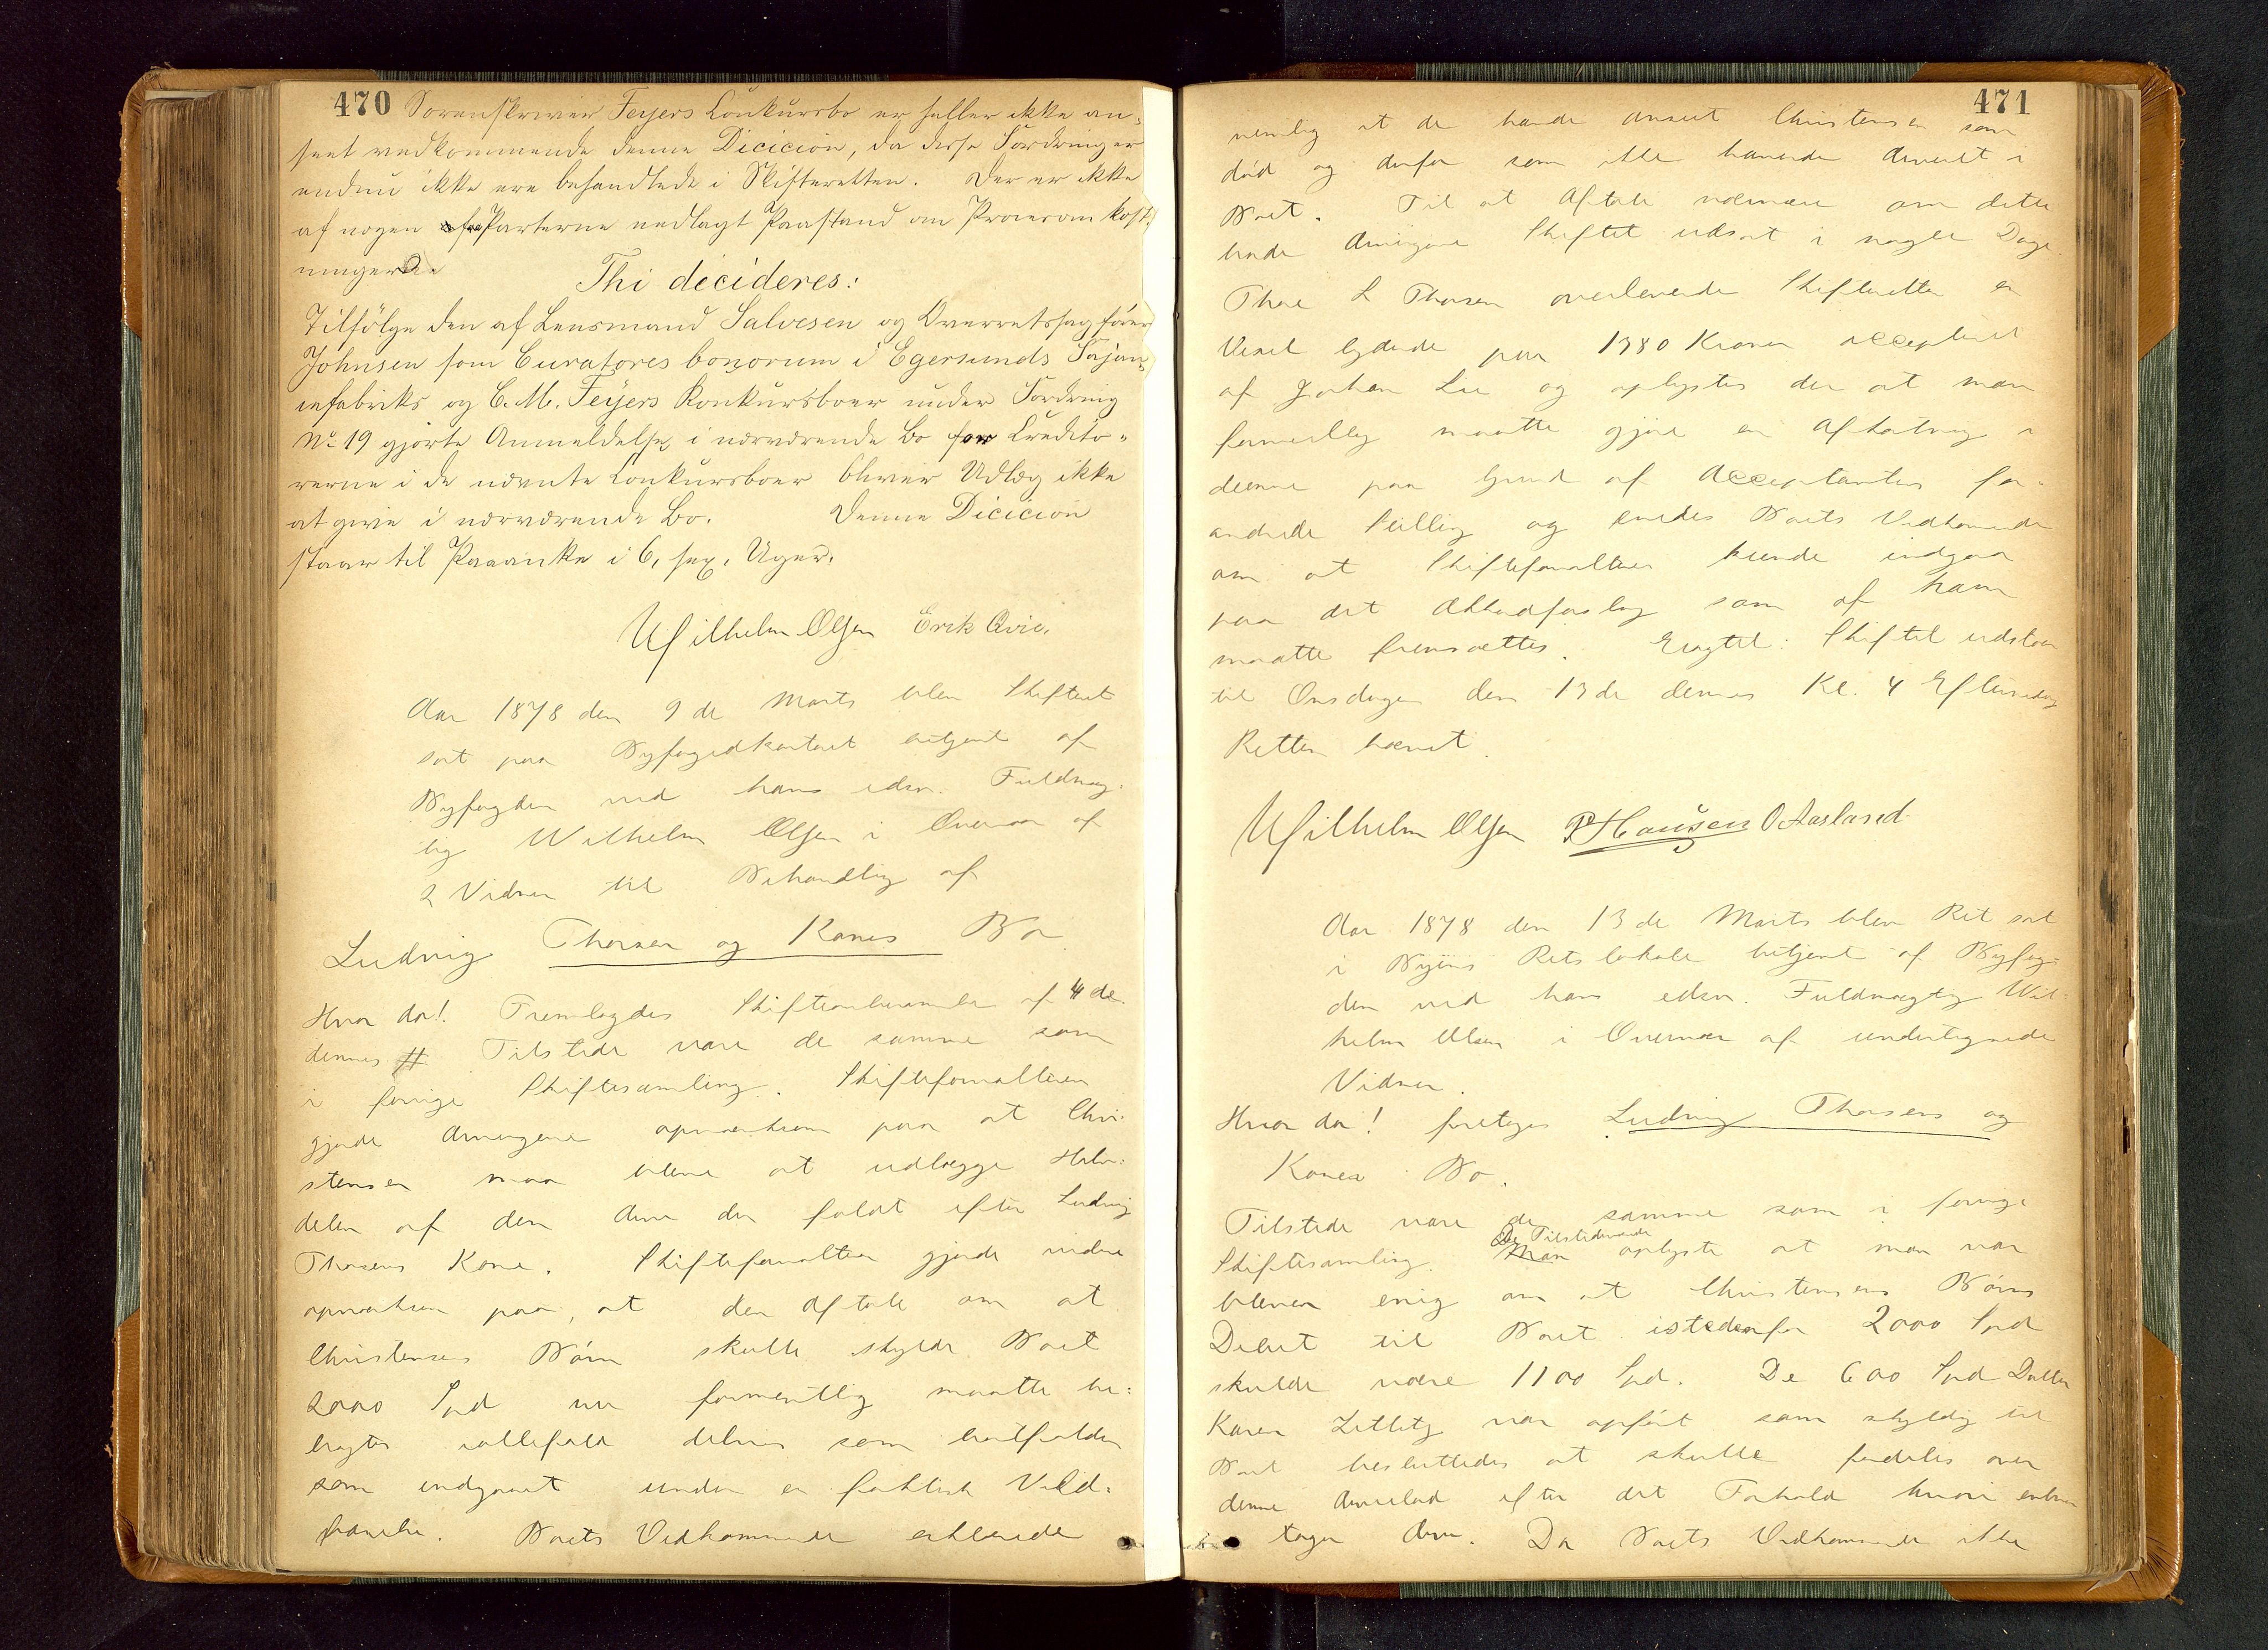 470
Sorenskriver Feyers Konkursbo er heller ikke an-
seet vedkommende denne Dicicion, da disse Fordringer
endnu ikke ere behandlede i Skifteretten. Der er ikke
af nogen af Parterne nedlagt Paastand om Procesomkost-
ninger.
Thi decideres:
Tilfölge den af Lensmand Salvesen og Overretssagfører
Johnsen som Curatores bonorum i Egersunds Fajan-
cefabriks og C. M. Feyers Konkursboer under Fordring
No 19 gjorte Anmeldelse i nærværende Bo for Credito-
rerne i de nævnte Konkursboer bliver Udlæg ikke
at give i nærværende Bo. Denne Dicicion
staar til Paaanke i 6, sex, Uger.
Wilhelm Olsen Erik Qvie.
Aar 1878 den 9de Marts blev Skifteret
sat paa Byfogedkontoret betjent af
Byfogden ved hans edsv. Fuldmæg-
tig Wilhelm Olsen i Overvær af
2 Vidner til Behandling af
Ludvig Thorsen og Kones Bo
Hvor da! Fremlagdes Skifteanberammelse af 4de
dennes # Tilstede vare de samme som
i forrige Skiftesamling. Skifteforvalteren
gjorde Arvingerne opmærksom paa at Chri-
stensen maa blive at udlægge Halv-
delen af den Arv der faldt efter Ludvig
Thorsens Kone. Skifteforvalteren gjorde videre
opmærksom paa, at den Aftale om at
Christensens Børn skulle skylde Boet
2000 Spd nu formentlig maatte be-
tragtes ialfald delvis som bortfalden
som indgaaet under en faktisk Vild-
farelse. Boets Vedkommende erklærede
471
nemlig at de havde anseet Christensen som
død og derfor som ikke havende arveret i
Boet. Til at Aftale nærmere om dette
havde Arvingerne Skiftet udsat i nogle Dage.
Thore L Thorsen overleverede Skifteretten en
Vexel lydende paa 1380 Kroner accepteret
af Johan Lie og oplystes der at man
formentlig maatte gjøre en Afkortning i
denne paa Grund af Acceptantens for-
andrede Stilling og enedes Boets Vedkommende
om at Skifteforvalteren kunde indgaa
paa det Akkordforslag som af ham
maatte fremsættes. Eragtet: Skiftet udstaar
til Onsdagen den 13de dennes Kl. 4 Eftermidag
Retten hævet.
Wilhelm Olsen P Hansen O Aasland
Aar 1878 den 13de Marts blev Ret sat
i Byens Retslokale betjent af Byfog-
den ved hans edsv. Fuldmægtig Wil-
helm Olsen i Overvær af undertegnede
Vidner.
Hvor da! foretoges Ludvig Thorsens og
Kones Bo.
Tilstede vare de samme som i forrige
Skiftesamling. De Tilstedeværende oplyste at man var
bleven enig om at Christensens Børns
Debet til Boet istedenfor 2000 Spd
skulde være 1100 Spd. De 600 Spd Datter
Karen Zetlitz var opført som skyldig til
Boet besluttedes at skulle fordeles over
denne Arvelod efter det Forhold hvori enhver
tager Arv. Da Boets Vedkommende ikke